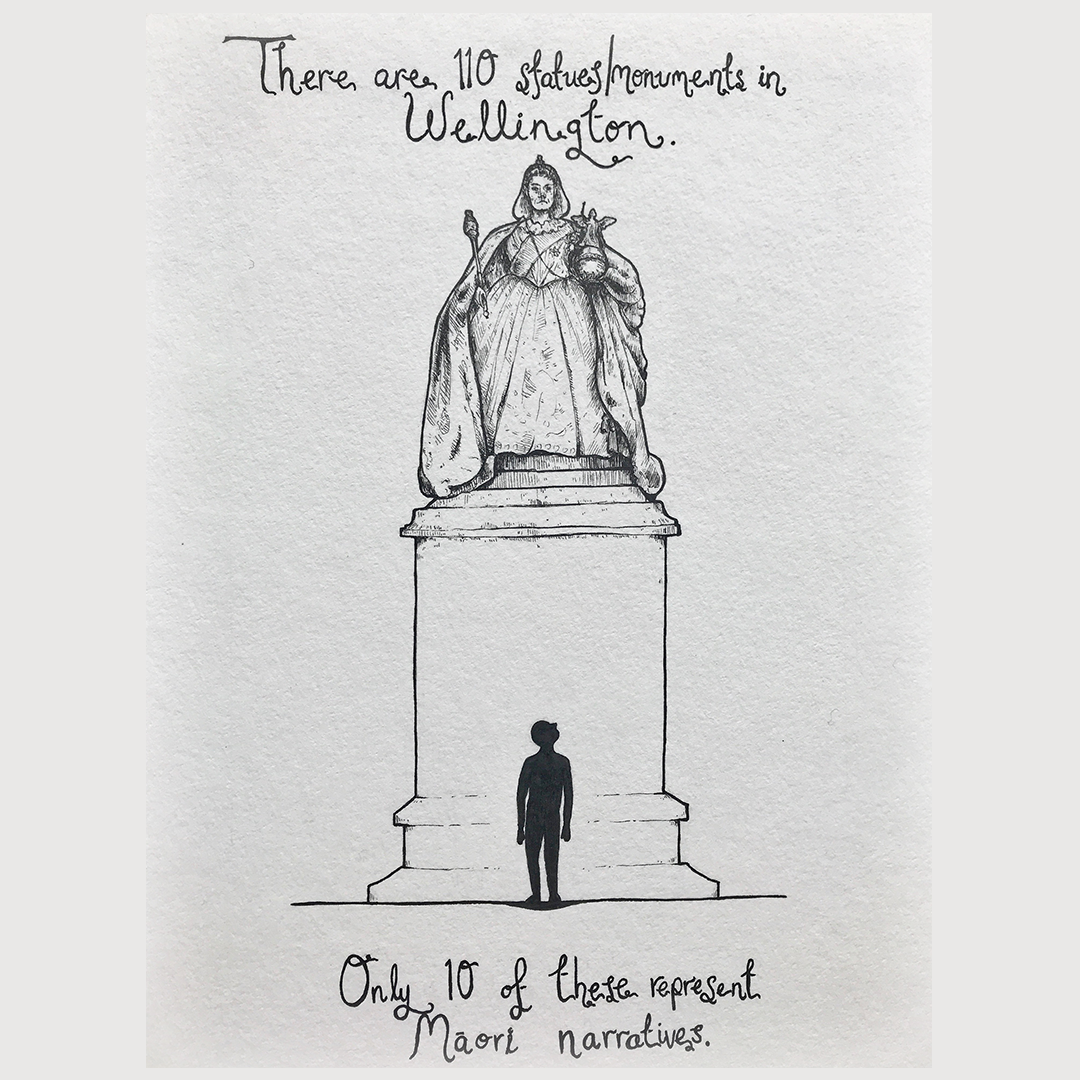 There are 110 statues/monuments in
Wellington.
Only 10 of these represent
Māori narratives.